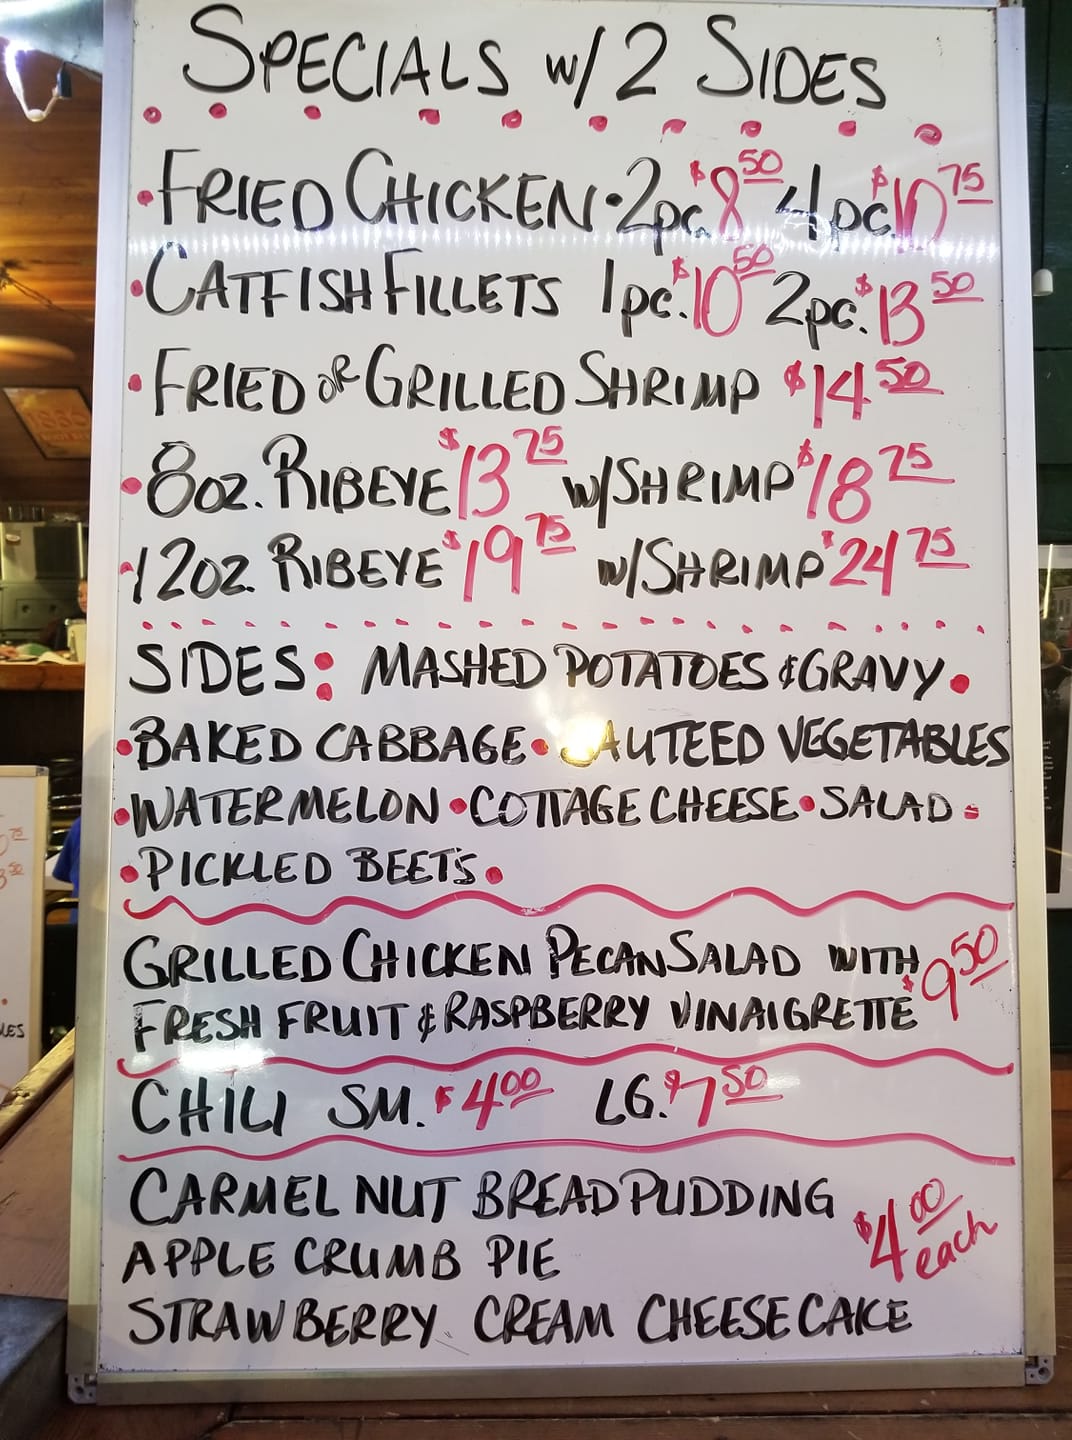 SPECIALS w/ 2 SIDES
• FRIED CHICKEN • 2pc. $8 50 4pc. $10 75
• CATFISH FILLETS 1pc. $10 50 2pc. $13 50
• FRIED OR GRILLED SHRIMP $14 50
• 8oz. RIBEYE $13 75 w/SHRIMP $18 75
• 12oz RIBEYE $19 75 w/SHRIMP $24 75
SIDES: MASHED POTATOES & GRAVY •
• BAKED CABBAGE • SAUTEED VEGETABLES
• WATERMELON • COTTAGE CHEESE • SALAD •
• PICKLED BEETS •
GRILLED CHICKEN PECAN SALAD WITH
FRESH FRUIT & RASPBERRY VINAIGRETTE $9 50
CHILI SM. $4 00 LG. $7 50
CARMEL NUT BREAD PUDDING
APPLE CRUMB PIE $4 00 each
STRAWBERRY CREAM CHEESE CAKE